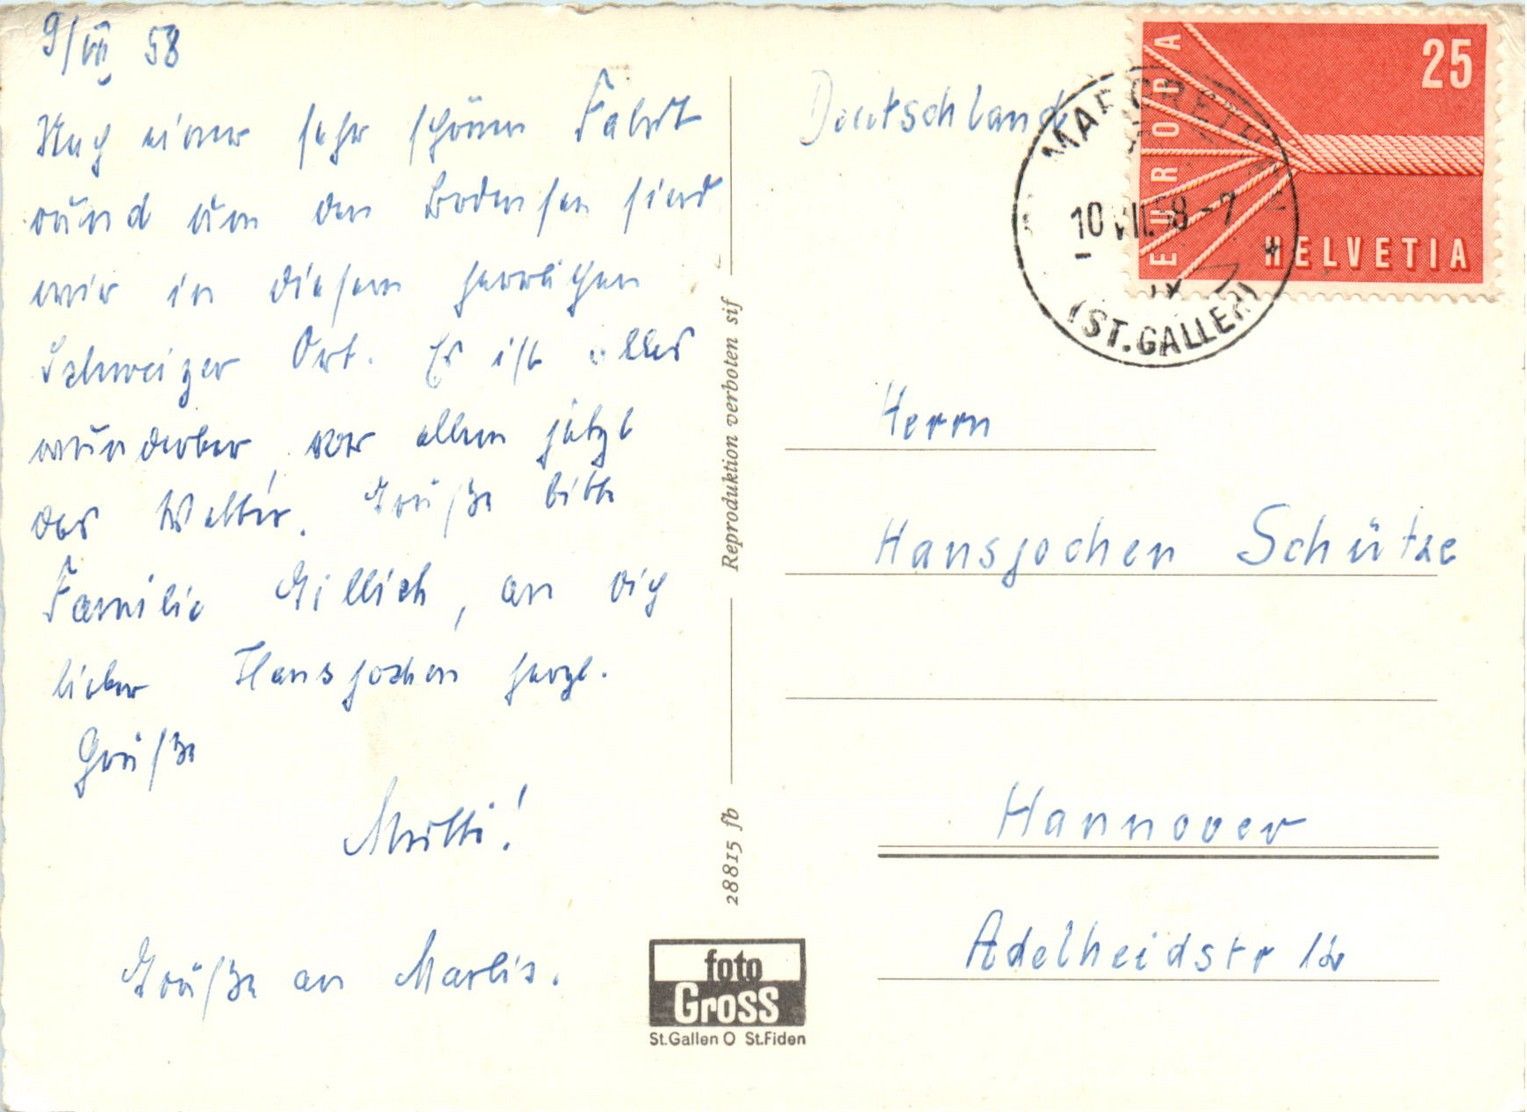 9/VII 58
Nach einer sehr schönen Fahrt
rund um den Bodensee sind
wir in diesem herrlichen
Schweizer Ort. Es ist alles
wunderbar, vor allem jetzt
das Wetter. Grüße bitte
Familie Gillich, an Dich
lieber Hansjochen herzl.
Grüße
Mutti!
Grüße an Marlis.
Reproduktion verboten sif
28815 fb
foto
Gross
St.Gallen O St.Fiden
Deutschland
EUROPA
25
HELVETIA
MARGRETHEN
10.VII.58-7
(ST.GALLEN)
Herrn
Hansjochen Schütze
Hannover
Adelheidstr